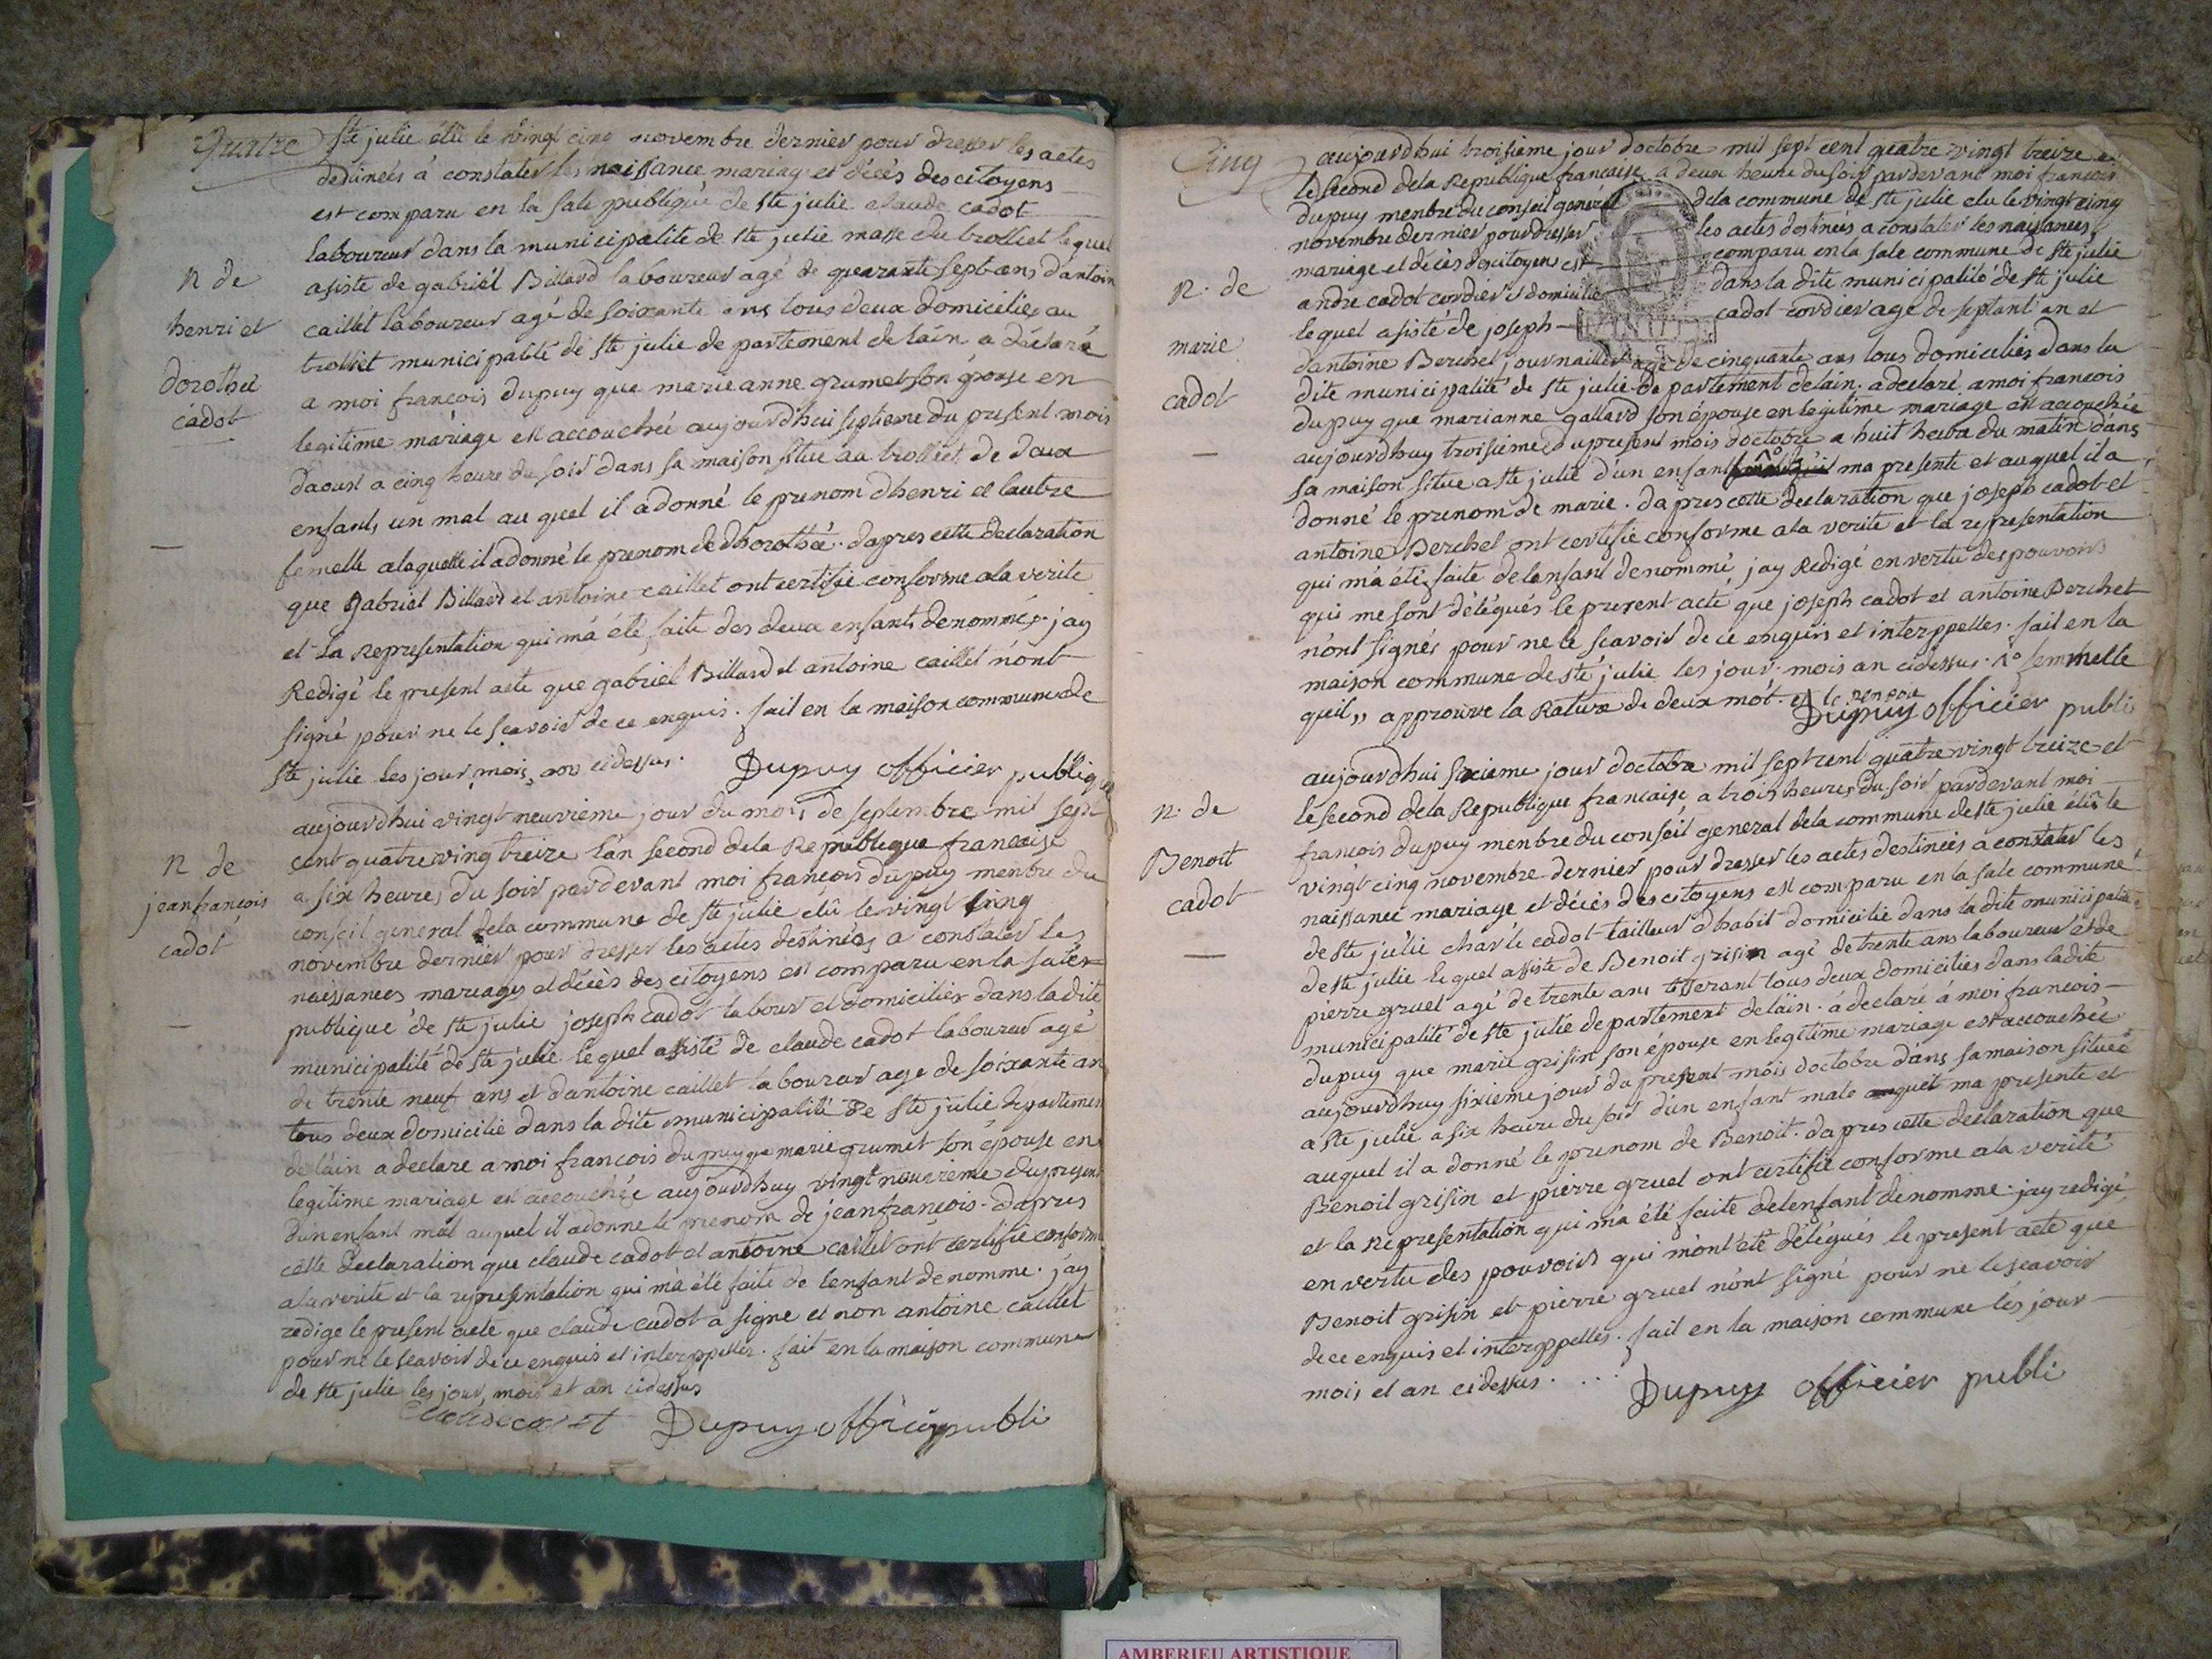 Quatre
Ste julie élû le vingt cinq novembre dernier pour dresser les actes
destinées à constater les naissance mariage et décès des citoyens
est comparu en la sale publique de ste julie claude cadot
laboureur dans la municipalité de ste julie masse du trolliet lequel
asisté de gabriél Billard laboureur agé de quarante sept ans d'antoin
caillet laboureur agé de soixante ans tous deux domiciliés au
trolliet municipalité de ste julie departement de láin a déclaré
a moi françois dupuy que marie anne grumet son épouse en
legitime mariage est accouchée aujourdhui septieme du present mois
daoust a cinq heure du soir dans sa maison situe au trolliet de deux
enfants un mal au quel il a donné le prenom dhenri et lautre
femelle a laquelle il a donné le prenom de dhorothée. dapres cette declaration
que gabriel Billard et antoine caillet ont certifie conforme ala verite
et la representation qui má été faite des deux enfants denommés. jay
Redigé le present acte que gabriel Billard et antoine caillet n'ont
signé pour ne le scavoir de ce enquis. fait en la maison commune de
ste julie les jour, mois, an cidessus. Dupuy officier publique
n de
henri et
dorothée
cadot
aujourdhui vingt neuvième jour du mois de septembre mil sept
cent quatre ving treize l'an second dela Republique francaise
a six heures du soir pardevant moi francois dupuy menbre du
conseil general dela commune de ste julie elû le vingt cinq
novembre dernier pour dresser les actes destinées a constater les
naissances mariages et décès des citoyens est comparu en la sale
publique de ste julie joseph cadot labour et domicilier dans la dite
municipalité de ste julie lequel assisté de claude cadot laboureur agé
de trente neuf ans et d'antoine caillet laboureur age de soixante an
tous deux domicilié dans la dite municipalité de ste julie departemen
de láin a declare a moi francois dupuy que marie grumet son épouse en
legitime mariage est accouchée aujourdhuy vingt neuvieme du present
dun enfant mâl auquel il a donne le prenom de jean francois. dapres
cette declaration que claude cadot et antoine caillet ont certifié conform
ala verite et la representation qui má été faite de lenfant denomme. jay
redige le present acte que claude cadot a signe et non antoine caillet
pour ne le scavoir de ce enquis et interppeller. fait en la maison commune
de ste julie les jour, mois et an cidessus
Dupuy officier publi
n de
jean francois
cadot
Cinq
aujourdhui troisieme jour doctobre mil sept cent quatre vingt treize et
le second dela Republique francaise a deux heure du soir pardevant moi francois
dupuy menbre du conseil general dela commune de ste julie elu le vingt cinq
novembre dernier pour dresser les actes destinées a constater les naissances
mariage et décès des citoyens est comparu en la sale commune de ste julie
andre cadot cordier domicilie dans la dite municipalité de ste julie
le quel asisté de joseph cadot cordier age de septant an et
dantoine Berchet journaillier agé de cinquante ans tous domicilies dans la
dite municipalité de ste julie departement de láin. a declaré a moi francois
dupuy que marianne gallard son épouse en legitime mariage est accouchée
aujourdhuy troisieme du present mois doctobre a huit heure du matin dans
sa maison situe a ste julie d'un enfant ma presente et auquel il a
donné le prenom de marie. dapres cette declaration que joseph cadot et
antoine Berchet ont certifie conforme ala verite et la representation
qui má été faite de lenfant denommé jay Redigé en vertu des pouvoirs
qui me sont délégués le present acte que joseph cadot et antoine Berchet
nónt signés pour ne le scavoir de ce enquis et interppelles. fait en la
maison commune de ste julie les jour mois an cidessus. femmelle
queil,, approuve la Rature de deux mot. et le renvoie
Dupuy officier publi
n. de
marie
cadot
aujourdhui sixieme jour doctobre mil sept cent quatre vingt treize et
le second dela Republique francaise a trois heures du soir pardevant moi
francois dupuy menbre du conseil general dela commune de ste julie élû le
vingt cinq novembre dernier pour dresser les actes destinées a constater les
naissance mariage et décès des citoyens est comparu en la sale commune
de ste julie charle cadot tailleur dhabit domicilié dans la dite municipalite
de ste julie le quel assiste de Benoit grisin agé de trente ans laboureur et de
pierre gruel agé de trente ans tisserant tous deux domicilies dans ladite
municipalité de ste julie departement de láin. á declaré á moi francois
dupuy que marie grisin son épouse en legitime mariage est accouchée
aujourdhuy sixieme jour du present mois doctobre dans sa maison située
a ste julie a six heure du soir d'un enfant male quil ma presente et
auquel il a donné le prenom de Benoit. dapres cette declaration que
Benoit grisin et pierre gruel ont certifie conforme ala verité
et la Representation qui má été faite de lenfant denomme. jay redigé
en vertu des pouvoirs qui mónt été délégués le present acte que
Benoit grisin et pierre gruel nónt signé pour ne le scavoir
de ce enquis et interppelles. fait en la maison commune les jour
mois et an cidessus. . . . Dupuy officier publi
n. de
Benoit
cadot
AMBERIEU ARTISTIQUE